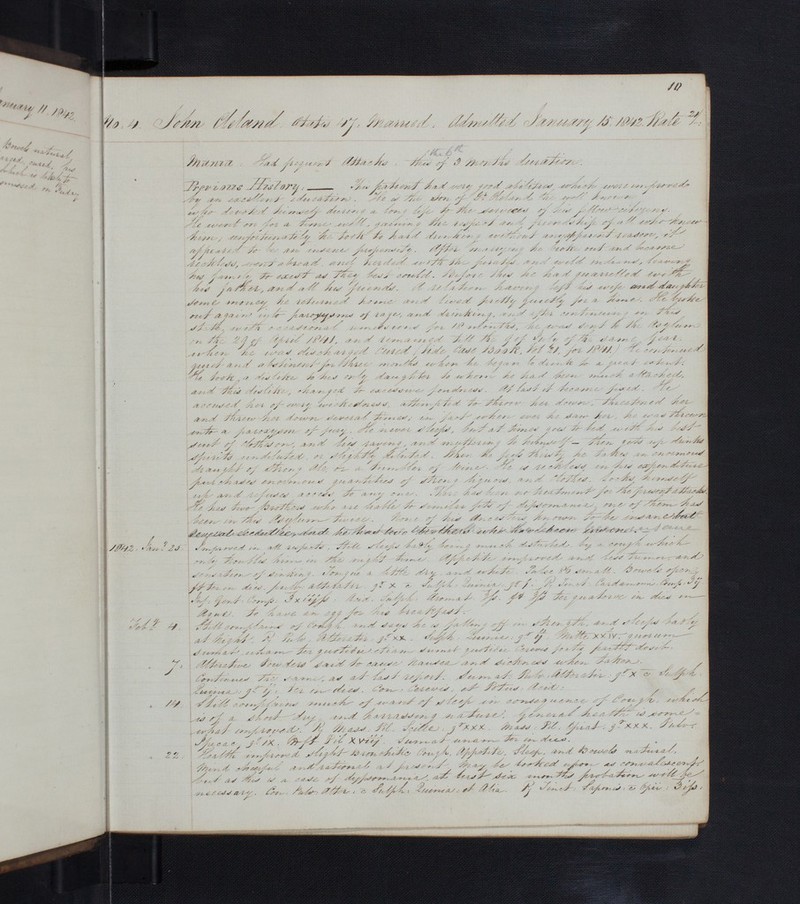 January 11. 1842
Bowels natural
10
No. 4. John Cleland. Ætatis 47. Married. Admitted January 15. 1842. Rate
Mania. Had frequent attacks. this the 6th of 3 months duration.
Previous History.— The patient had very good abilities, which were improved
by an excellent education. He is the son of Dr Cleland the well known
who devoted himself during a long life to the services of his fellow citizens
He went on for a time well, gaining the respect and friendship of all who knew
him; unfortunately he took to hard drinking without any apparent reason, it
appeared to be an insane propensity. After marrying he broke out and became
reckless, went abroad and herded with the pirates and wild indians, leaving
his family to exist as they best could. Before this he had quarrelled with
his father, and all his friends. A relation having left his wife and daughter
some money, he returned home and lived pretty quietly for a time. He broke
out again into paroxysms of rage, and drinking, and after continuing in this
state, with occasional remissions for 18 months, he was sent to the Asylum
on the 29 of April 1841, and remained till the 9 of July of the same year
when he was discharged cured, (vide Case Book, Vol 21, for 1841) He continued
quiet and abstinent for three months when he began to drink to a great extent.
He took a dislike to his only daughter to whom he had been much attached,
and this dislike, changed to excessive fondness. At last it became fixed. He
accused her of very wickedness, attempted to throw her down, threatened her
and threw her down several times, in fact when ever he saw her, he was thrown
into a paroxysm of fury. He never sleeps, but at times goes to bed with his best
suit of clothes on, and lies raving, and muttering to himself— then gets up drinks
spirits undiluted or slightly diluted. When he feels thirsty he takes an enormous
draught of strong Ale, or a tumbler of Wine. He is reckless in his expenditure
purchases enormous quantities of strong liquors, and clothes. locks himself
up and refuses access to any one. There has been no treatment for the present attack.
He has two Brothers who are liable to similar fits of dypsomania, one of them has
been in this Asylum twice. None of his Ancestors known to be insane but
1842. Jany. 25. Improved in all respects. Still sleeps badly being much disturbed by a cough which
only troubles him in the night time. Appetite improved and less tremor and
sensation of sinking. Tongue a little dry and white. Pulse 78 small. Bowels open.
ft ter in dies. pulv. alterativ. gr x c Sulph. Quinia. gr j. ℞ Tinct. Cardamom. Comp.
Inf. Gent. Comp. Acid. Sulph. Aromat. ter quaterve in dies in
To have an egg for his breakfast.
Feby. 4. Still complains of cough and says he is falling off in strength and sleeps badly
at night. ℞ Pulv. Alterativ. gr xx. Sulph. Quinia. gr ij. Mitte xxiv. quorum
sumat unum ter quotidie
7. Alterative Powders said to cause nausea and sickness when taken.
Continues the same, as at last report. Sumat Pulv. Alterativ. gr x c Sulph.
Quinia gr ij. ter in dies. Con. Potus Acid:
14. Still complains much of want of sleep in consequence of Cough. which
is of a short dry, and harrassing nature. General health is some-
what improved. ℞ Mass. Pil. Scillæ. gr xxx. Mass. Pil. Opiat. gr xxx. Pulv.
Ipecac. gr ix. ft Pil xviij. Sumat unam ter in dies.
22. Health improved slight Bronchitic Cough, Appetite, Sleep, and Bowels natural.
Mind cheerful and rational at present. May be looked upon as convalescent
but as this is a case of dypsomania, at least six months probation will be
necessary. Con. Pulv. Alter. c Sulph. Quinia. et Alia. ℞ Tinct. Saponis. c Opio.